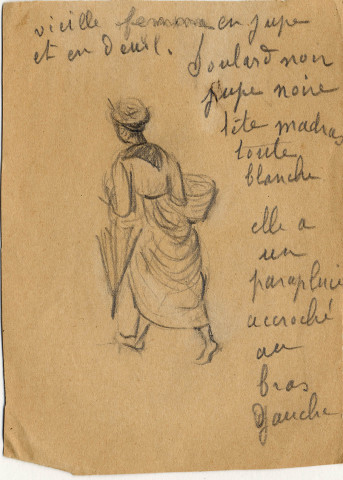 vieille femme en jupe
et en deuil.
foulard noir
jupe noire
tête madras
toute
blanche
elle a
un
parapluie
accroché
au
bras
gauche